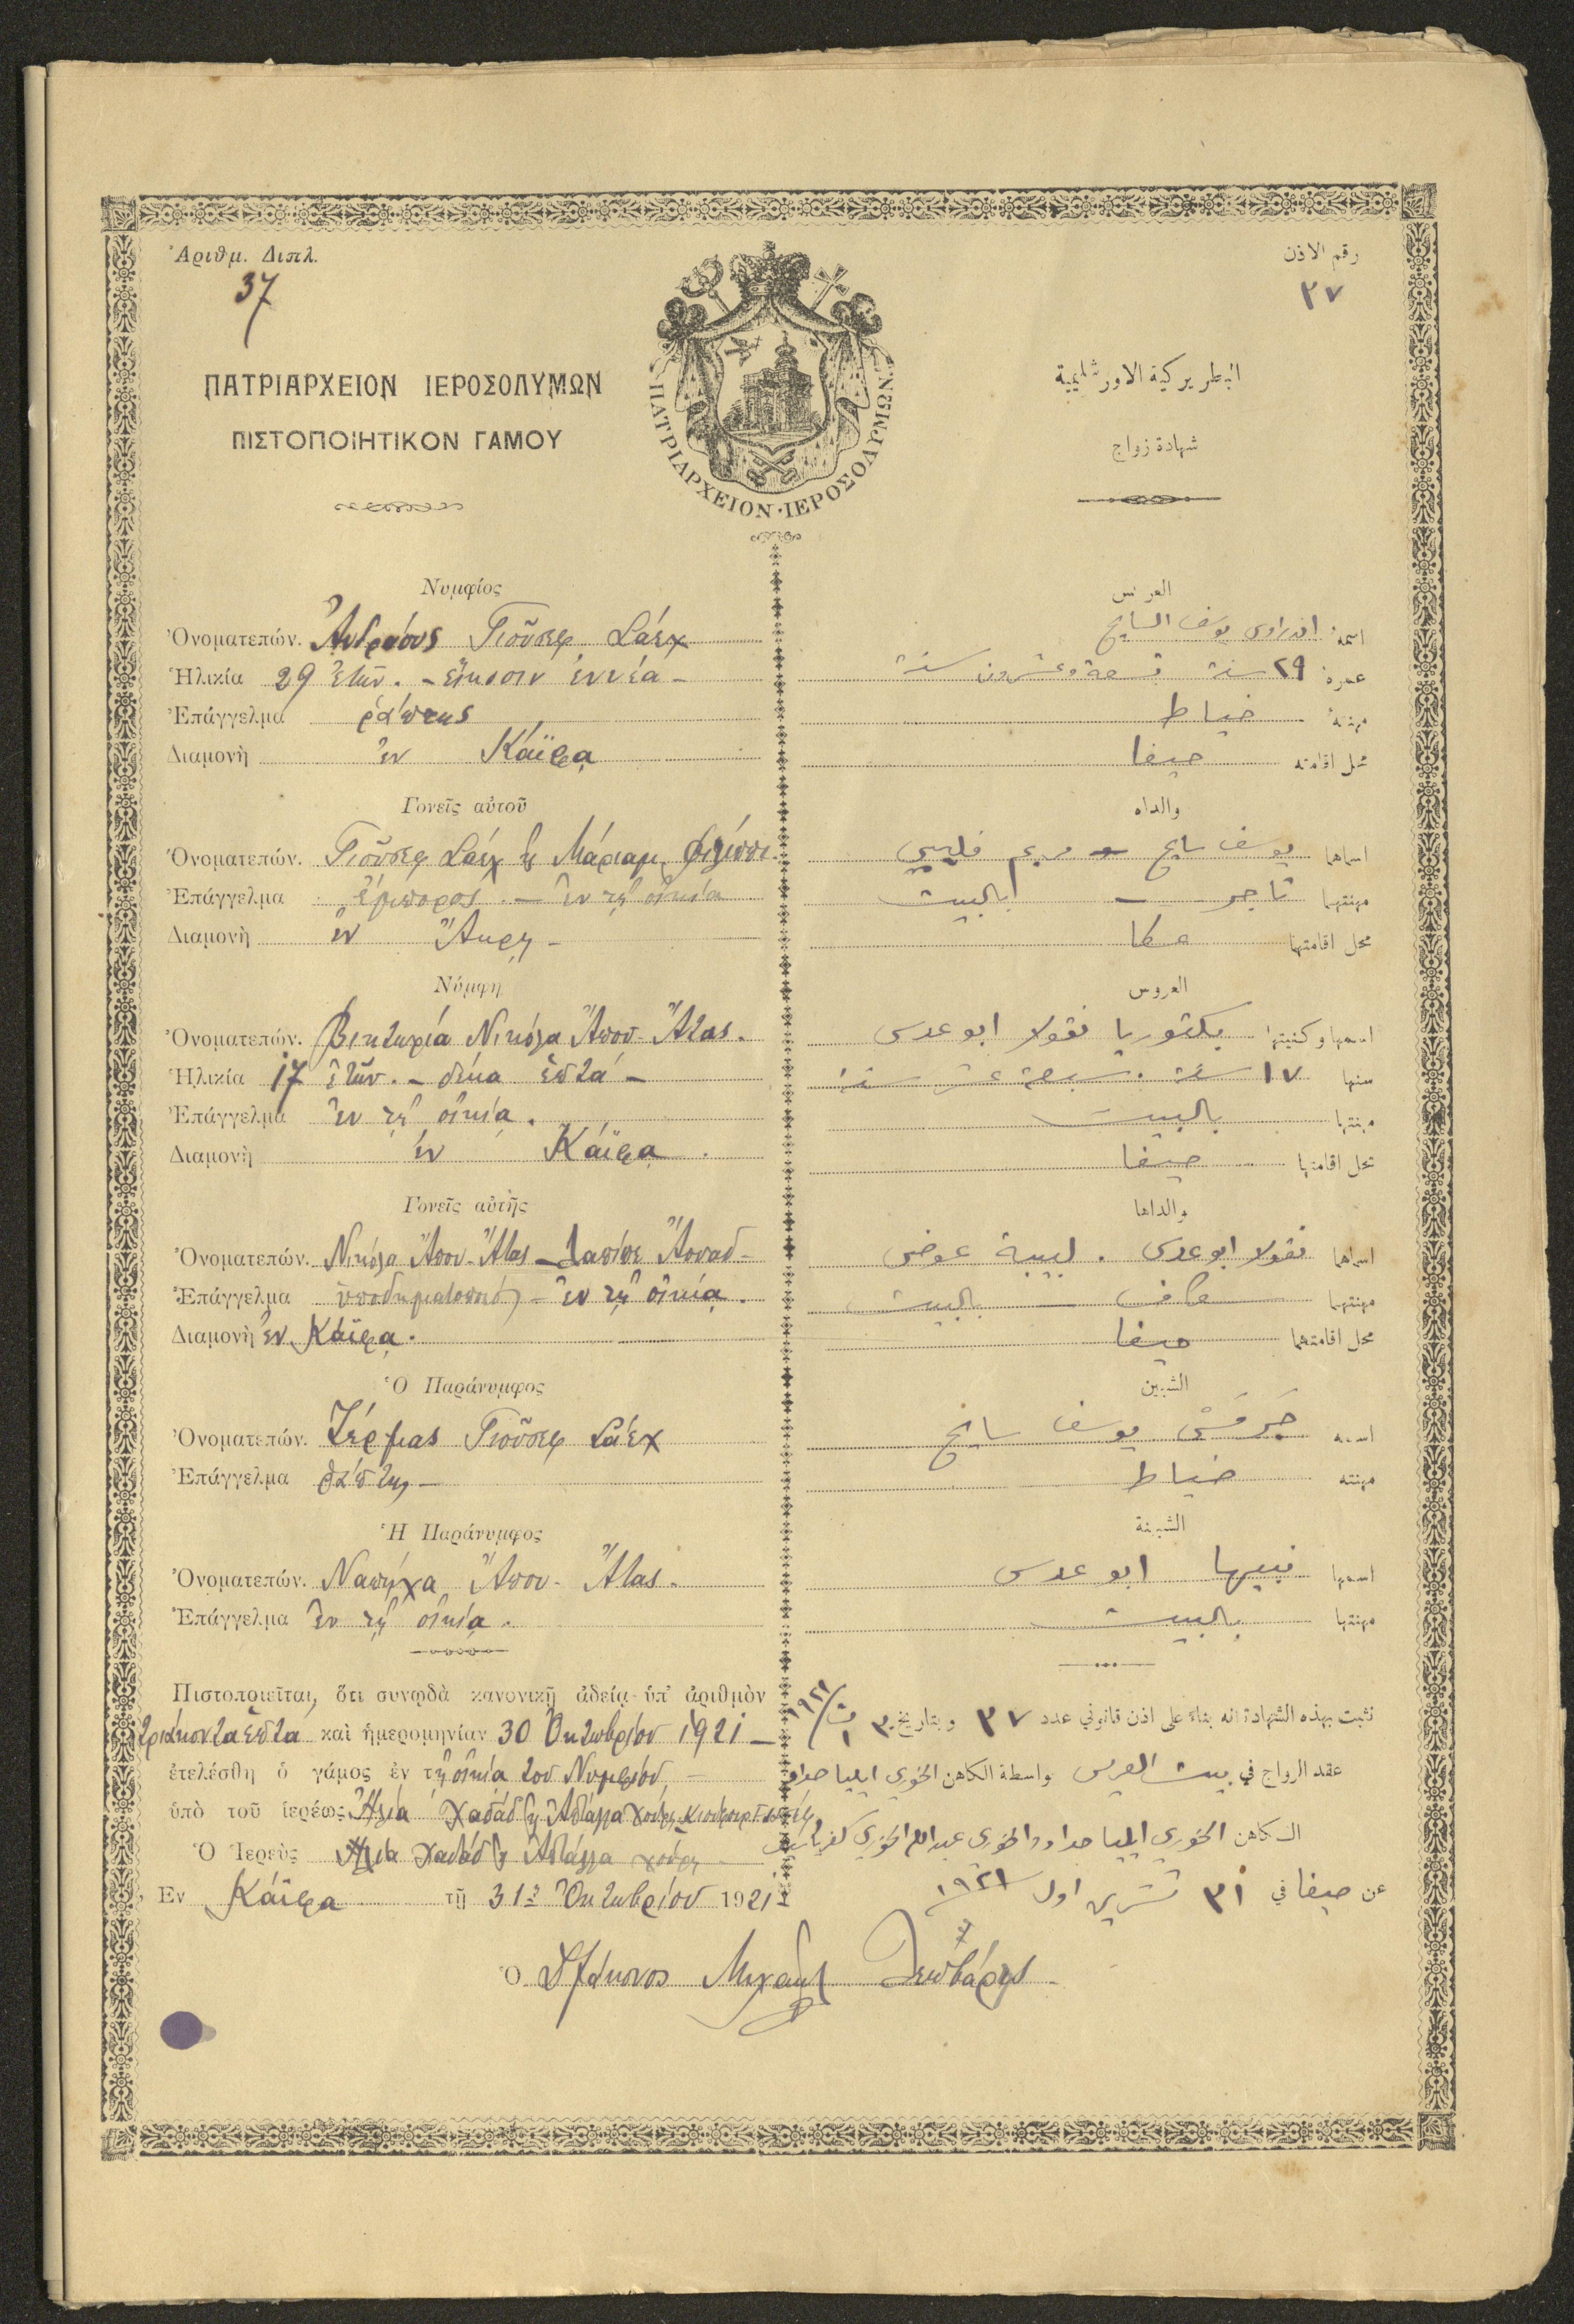 Ἀριθμ. Διπλ.
37
رقم الاذن
٣٧
ΠΑΤΡΙΑΡΧΕΙΟΝ ΙΕΡΟΣΟΛΥΜΩΝ
ΠΙΣΤΟΠΟΙΗΤΙΚΟΝ ΓΑΜΟΥ
ΠΑΤΡΙΑΡΧΕΙΟΝ·ΙΕΡΟΣΟΛΥΜΩΝ
البطريركية الاورشليمية
شهادة زواج
Νυμφίος
Ὀνοματεπών. Ἀνδράους Γιοῦσεφ Σάεχ
Ἡλικία 29 ἐτῶν. - εἴκοσιν ἐννέα -
Ἐπάγγελμα ῥάπτης
Διαμονὴ ἐν Κάϊφᾳ
Γονεῖς αὐτοῦ
Ὀνοματεπών. Γιοῦσεφ Σάεχ ϗ Μάριαμ Φιλίππι
Ἐπάγγελμα ἔμπορος. - ἐν τῇ οἰκίᾳ
Διαμονὴ ἐν Ἄκρῃ -
Νύμφη
Ὀνοματεπών. Βικτωρία Νικόλα Ἄπου-Ἄτας.
Ἡλικία 17 ἐτῶν. - δέκα ἑπτά -
Ἐπάγγελμα ἐν τῇ οἰκίᾳ.
Διαμονὴ ἐν Κάϊφᾳ.
Γονεῖς αὐτῆς
Ὀνοματεπών. Νικόλα Ἄπου-Ἄτας - Λαπίπε Ἄουαδ -
Ἐπάγγελμα ὑποδηματοποιός - ἐν τῇ οἰκίᾳ.
Διαμονὴ ἐν Κάϊφᾳ.
Ὁ Παράνυμφος
Ὀνοματεπών. Ζέρμας Γιοῦσεφ Σάεχ
Ἐπάγγελμα ῥάπτης -
Ἡ Παράνυμφος
Ὀνοματεπών. Ναπήχα Ἄπου-Ἄτας.
Ἐπάγγελμα ἐν τῇ οἰκίᾳ.
Πιστοποιεῖται, ὅτι συνῳδὰ κανονικῇ ἀδείᾳ ὑπ' ἀριθμὸν
τριάκοντα ἑπτά καὶ ἡμερομηνίαν 30 Ὀκτωβρίου 1921 -
ἐτελέσθη ὁ γάμος ἐν τῇ οἰκίᾳ τοῦ Νυμφίου, -
ὑπὸ τοῦ ἱερέως Ἠλία Χαδάδ ϗ Ἀπτάλλα Χούρη
Ὁ Ἱερεὺς Ἠλία Χαδάδ ϗ Ἀπτάλλα Χούρη
Ἐν Κάϊφᾳ τῇ 31ῃ Ὀκτωβρίου 1921
العريس
اسمه اندراوس يوسف السايح
عمره ٢٩ سنة تسعة وعشرون سنة
مهنته خياط
محل اقامته حيفا
والداه
اسماهما يوسف سايح و مريم فليبي
مهنتهما تاجر - بالبيت
محل اقامتهما عكا
العروس
اسمها وكنيتها بكتوريا نقولا ابو عدس
سنها ١٧ سنة. سبعة عشر سنة
مهنتها بالبيت
محل اقامتها حيفا
والداها
اسماهما نقولا ابو عدس. لبيبة عوض
مهنتهما كاف - بالبيت
محل اقامتهما حيفا
الشبين
اسمه جرمس يوسف سايح
مهنته خياط
الشبينة
اسمها نبيها ابو عدس
مهنتها بالبيت
نثبت بهذه الشهادة انه بناءً على اذن قانوني عدد ٣٧ وبتاريخ ٣٠ ت١ ١٩٢١
عقد الزواج في بيت العريس بواسطة الكاهن الخوري ايليا حداد
الكاهن الخوري ايليا حداد والخوري عبدالله الخوري
عن حيفا في ٣١ تشرين اول ١٩٢١
Ὁ Διάκονος Μιχαὴλ